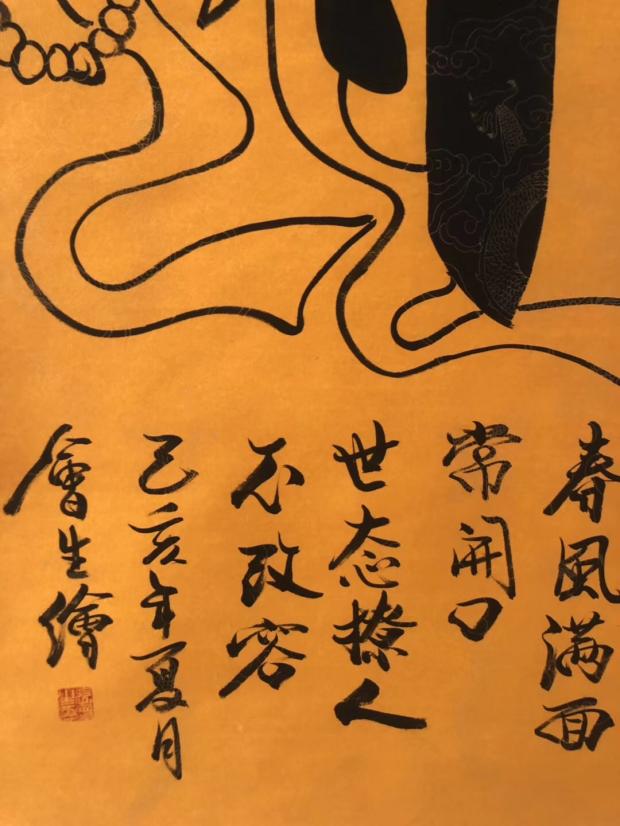 春風满面
常開口
世态撩人
不改容
己亥年夏月
會生繪